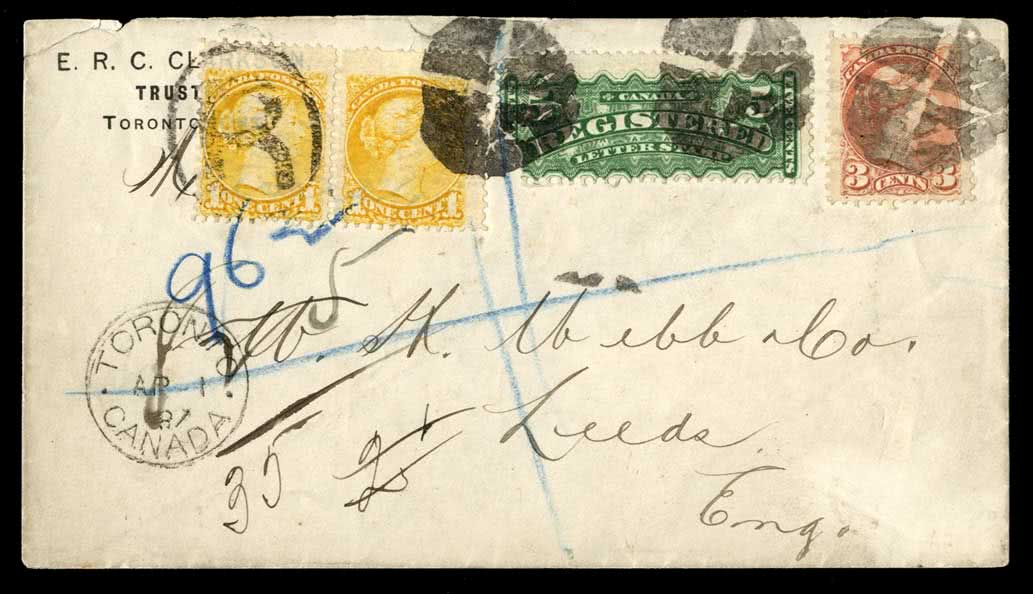 E. R. C.
TRUST
TORONTO
R
CANADA POSTAGE
ONE CENT
1 1
CANADA POSTAGE
ONE CENT
1 1
CANADA
5
REGISTERED
LETTER STAMP
FIVE CENTS
CANADA POSTAGE
3 CENTS 3
96
5
W. H. Webb & Co.
Leeds
Eng.
TORONTO
AP 1
87
CANADA
35
2